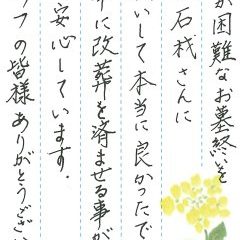 が困難なお墓終いを
石材さんに
いして本当に良かったで
りに改葬を済ませる事が
安心しています
フの皆様ありがとうござい